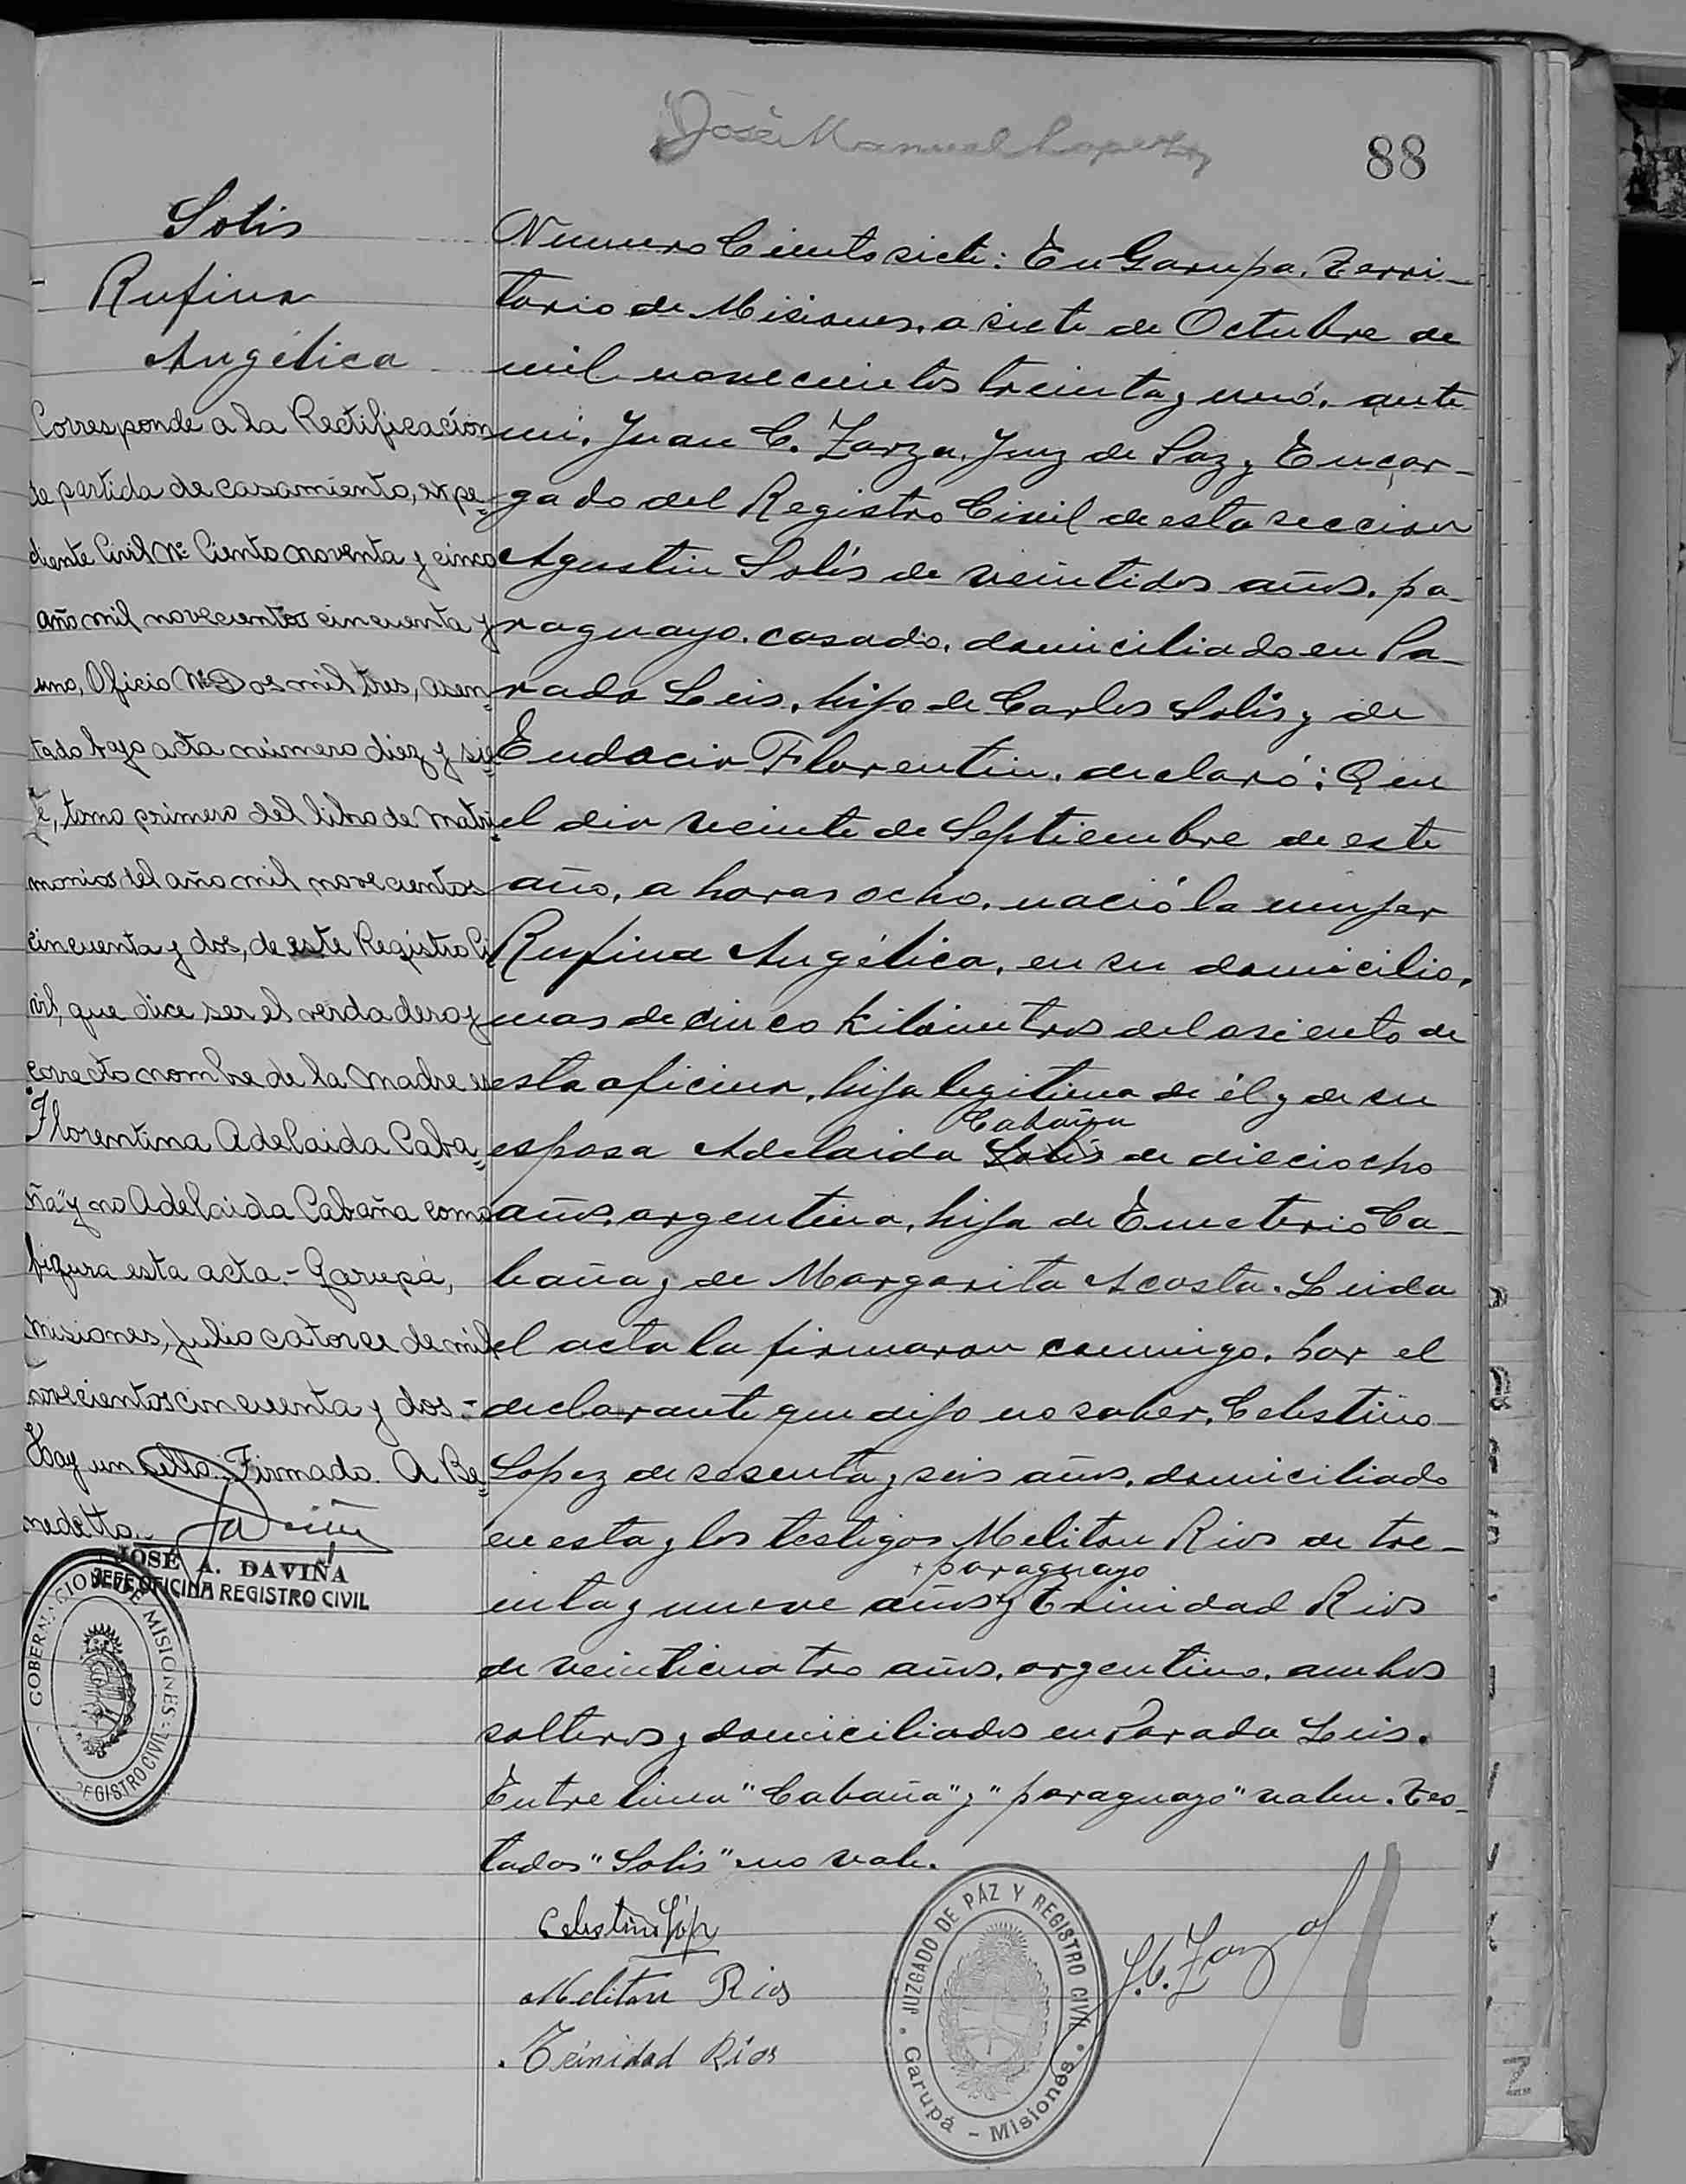 José Manuel Lopez
88
Solis
Rufina
Angélica
Corresponde a la Rectificación
de partida de casamiento, expe=
diente Civil Nº Ciento noventa y cinco
año mil novecientos cincuenta y
uno, Oficio Nº Dos mil tres, asen=
tado bajo acta número diez y sie=
te, tomo primero del libro de matri=
monios del año mil novecientos
cincuenta y dos, de este Registro Ci
vil, que dice ser el verdadero y
correcto nombre de la madre es
"Florentina Adelaida Caba=
ña" y no Adelaida Cabaña como
figura esta acta.- Garupá,
Misiones, julio catorce de mil
novecientos cincuenta y dos.-
Hay un sello. Firmado. A Be=
nedetto.
JOSÉ A. DAVIÑA
JEFE OFICINA REGISTRO CIVIL
GOBERNACION DE MISIONES
REGISTRO CIVIL
Numero Ciento siete: En Garupa, Terri-
torio de Misiones, a siete de Octubre de
mil novecientos treinta y uno, ante
mi, Juan C. Zarza, Juez de Paz y Encar-
gado del Registro Civil de esta seccion
Agustin Solis de veintidos años, pa-
raguayo, casado, domiciliado en Pa-
rada Leis, hijo de Carlos Solis y de
Eudocia Florentin, declaró: Que
el dia veinte de Septiembre de este
año, a horas ocho, nació la mujer
Rufina Angélica, en su domicilio,
mas de cinco kilometros del asiento de
esta oficina, hija legitima de él y de su
Cabaña
esposa Adelaida Solis de dieciocho
años, argentina, hija de Emeterio Ca-
baña y de Margarita Acosta. Leida
el acta la firmaron conmigo, por el
declarante que dijo no saber, Celestino
Lopez de sesenta y seis años, domiciliado
en esta y los testigos Meliton Rios de tre-
paraguayo
inta y nueve años y Trinidad Rios
de veinticuatro años, argentino, ambos
solteros y domiciliados en Parada Leis.
Entre linea "Cabaña" y "paraguayo" valen. Tes-
tados "Solis" no vale.
Celestino Lóp
Meliton Rios
Trinidad Ríos
JUZGADO DE PAZ Y REGISTRO CIVIL
Garupá - Misiones
J.C. Zarza